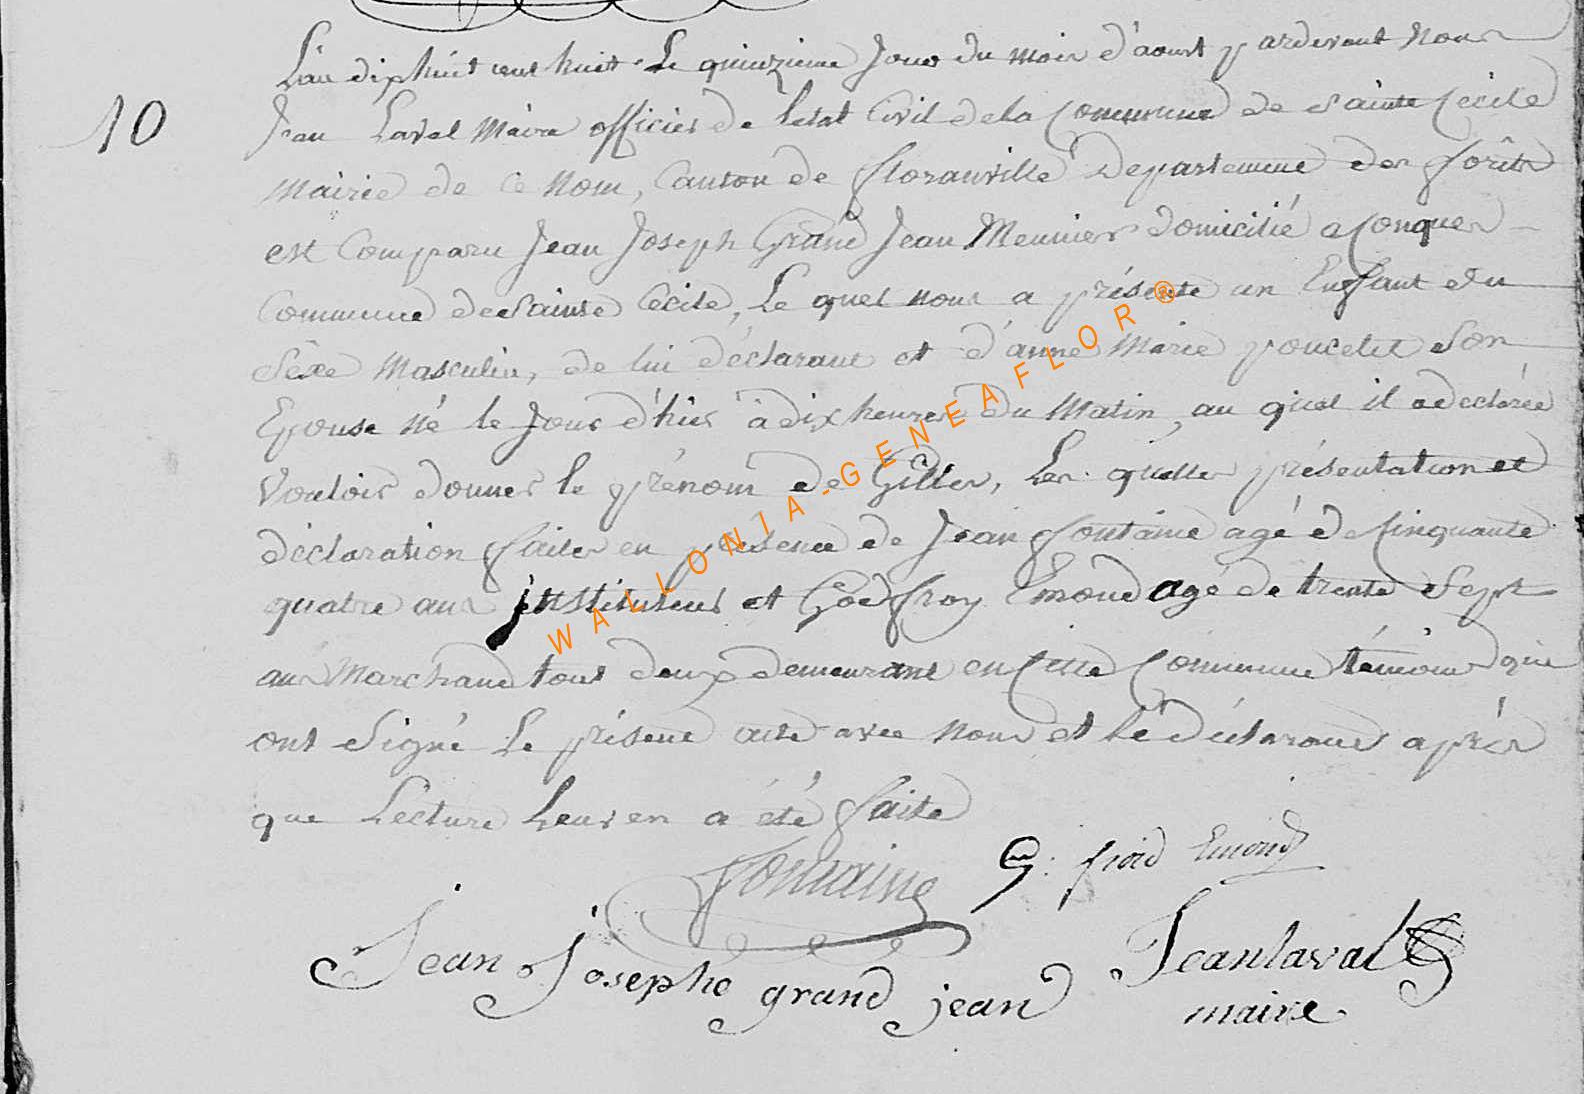 L'an dixhuit cent huit. Le quinzieme Jour du mois d'aoust pardevant nous
10
Jean Laval Maire officier de Letat Civil de la Commune de Sainte Cécile
Mairie de ce nom, Canton de floranville Departement des forêts
est Comparu Jean Joseph Grand Jean Meunier domicilié a Conques
Commune de Sainte Cécile, Le quel nous a présenté un Enfant du
Sèxe Masculin, de lui déclarant et d'anne Marie poncelet Son
Epouse né le Jour d'hier à dix heures du Matin, au quel il a declarée
Vouloir donner le prénom de Gilles, Les quelles présentation et
déclaration faites en présence de Jean fontaine agé de Cinquante
quatre ans instituteur et Godfroy Emond agé de trente Sept
ans Marchand tous deux demeurant en Cette Commune témoins qui
ont Signé Le présent acte avec nous et Le déclarant après
que Lecture Leur en a été faite
fontaine
G: froid Emond
Jean Josephe grand jean
Jean laval
maire
WALLONIA-GENEAFLOR®